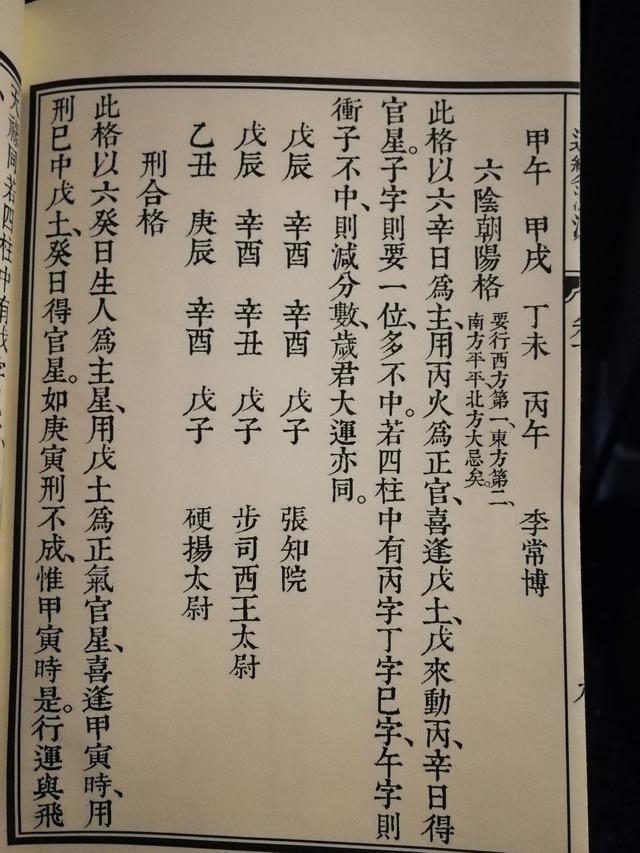 甲午　甲戌　丁未　丙午　李常博
六陰朝陽格
要行西方第一、東方第二、
南方平平、北方大忌矣。
此格以六辛日為主、用丙火為正官、喜逢戊土、戊來動丙、辛日得
官星。子字則要一位、多不中。若四柱中有丙字丁字巳字、午字則
衝子不中、則減分數、歲君大運亦同。
戊辰　辛酉　辛酉　戊子　張知院
戊辰　辛酉　辛丑　戊子　步司西王太尉
乙丑　庚辰　辛酉　戊子　硬揚太尉
刑合格
此格以六癸日生人為主星、用戊土為正氣官星、喜逢甲寅時、用
刑巳中戊土、癸日得官星。如庚寅刑不成、惟甲寅時是。行運與飛
同若四柱中有